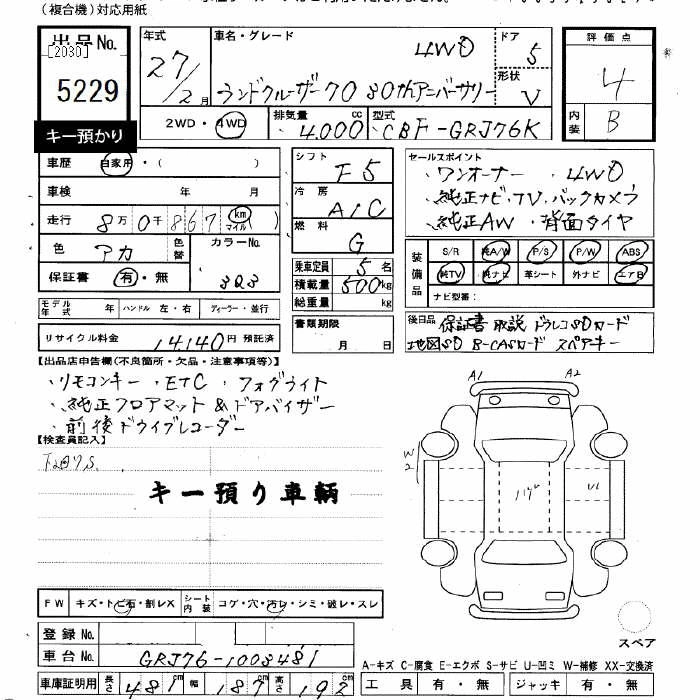 (複合機)対応用紙
出品No.
[2030]
5229
キー預かり
年式
27/2月
車名・グレード
4WD
ランドクルーザー70 30thアニバーサリー
ドア
5
形状
V
評価点
4
内装
B
2WD・4WD
排気量
4.000cc
型式
CBF-GRJ76K
車歴
自家用・( )
車検 年 月
走行 8万0千867 km マイル
色 アカ
色替
カラーNo.
3Q3
保証書 有・無
モデル年式 年 ハンドル 左・右 ディーラー・並行
リサイクル料金 14140円 預託済
シフト
F5
冷房
A/C
燃料
G
乗車定員 5名
積載量 500kg
総重量 kg
書類期限
月 日
セールスポイント
・ワンオーナー ・4WD
・純正ナビ・TV・バックカメラ
・純正AW ・背面タイヤ
装備品
S/R 純A/W P/S P/W ABS
純TV 純ナビ 革シート 外ナビ エアB
ナビ型番:
後日品 保証書 取説 ドラレコSDカード
地図SD B-CASカード スペアキー
【出品店申告欄(不良箇所・欠品・注意事項等)】
・リモコンキー ・ETC ・フォグライト
・純正フロアマット & ドアバイザー
・前後ドライブレコーダー
【検査員記入】
キー預り車輌
A1 A2
W2
FW キズ・トビ石・割レX シート内装 コゲ・穴・汚レ・シミ・破レ・スレ
登録No.
車台No. GRJ76-1003481
車庫証明用 長さ 481cm 幅 187cm 高さ 192cm
スペア
A-キズ C-腐食 E-エクボ S-サビ U-凹ミ W-補修 XX-交換済
工具 有・無 ジャッキ 有・無